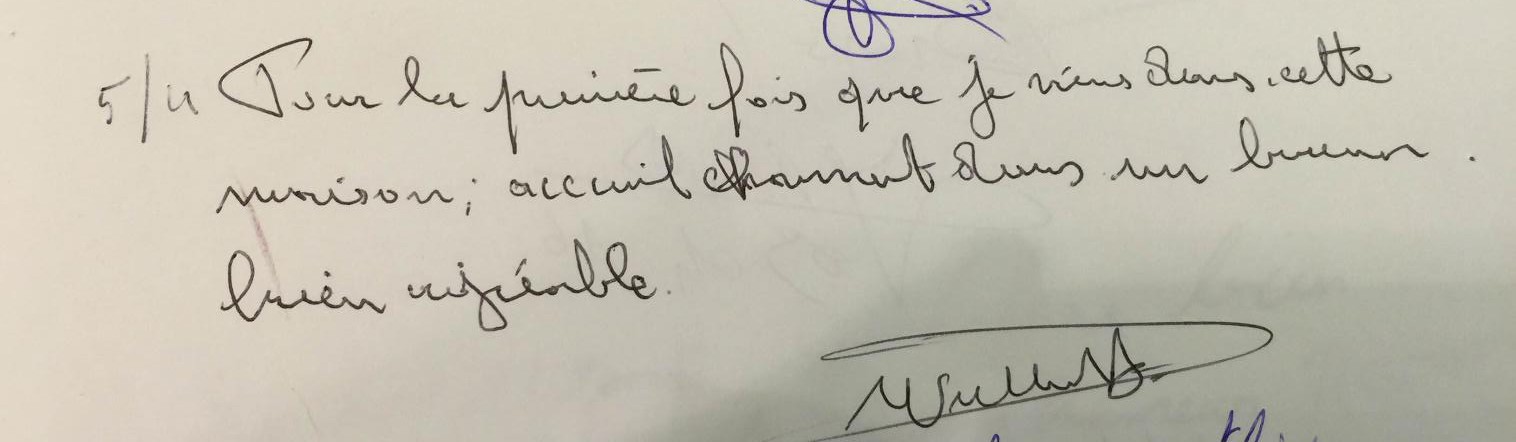 5/11 Pour la première fois que je viens dans cette
maison ; accueil charmant dans un bureau .
bien agréable.